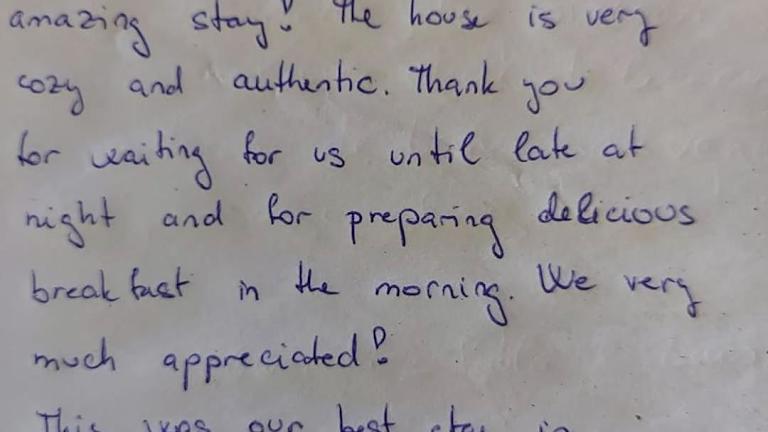 amazing stay! The house is very
cozy and authentic. Thank you
for waiting for us until late at
night and for preparing delicious
breakfast in the morning. We very
much appreciated!
This was our best stay in